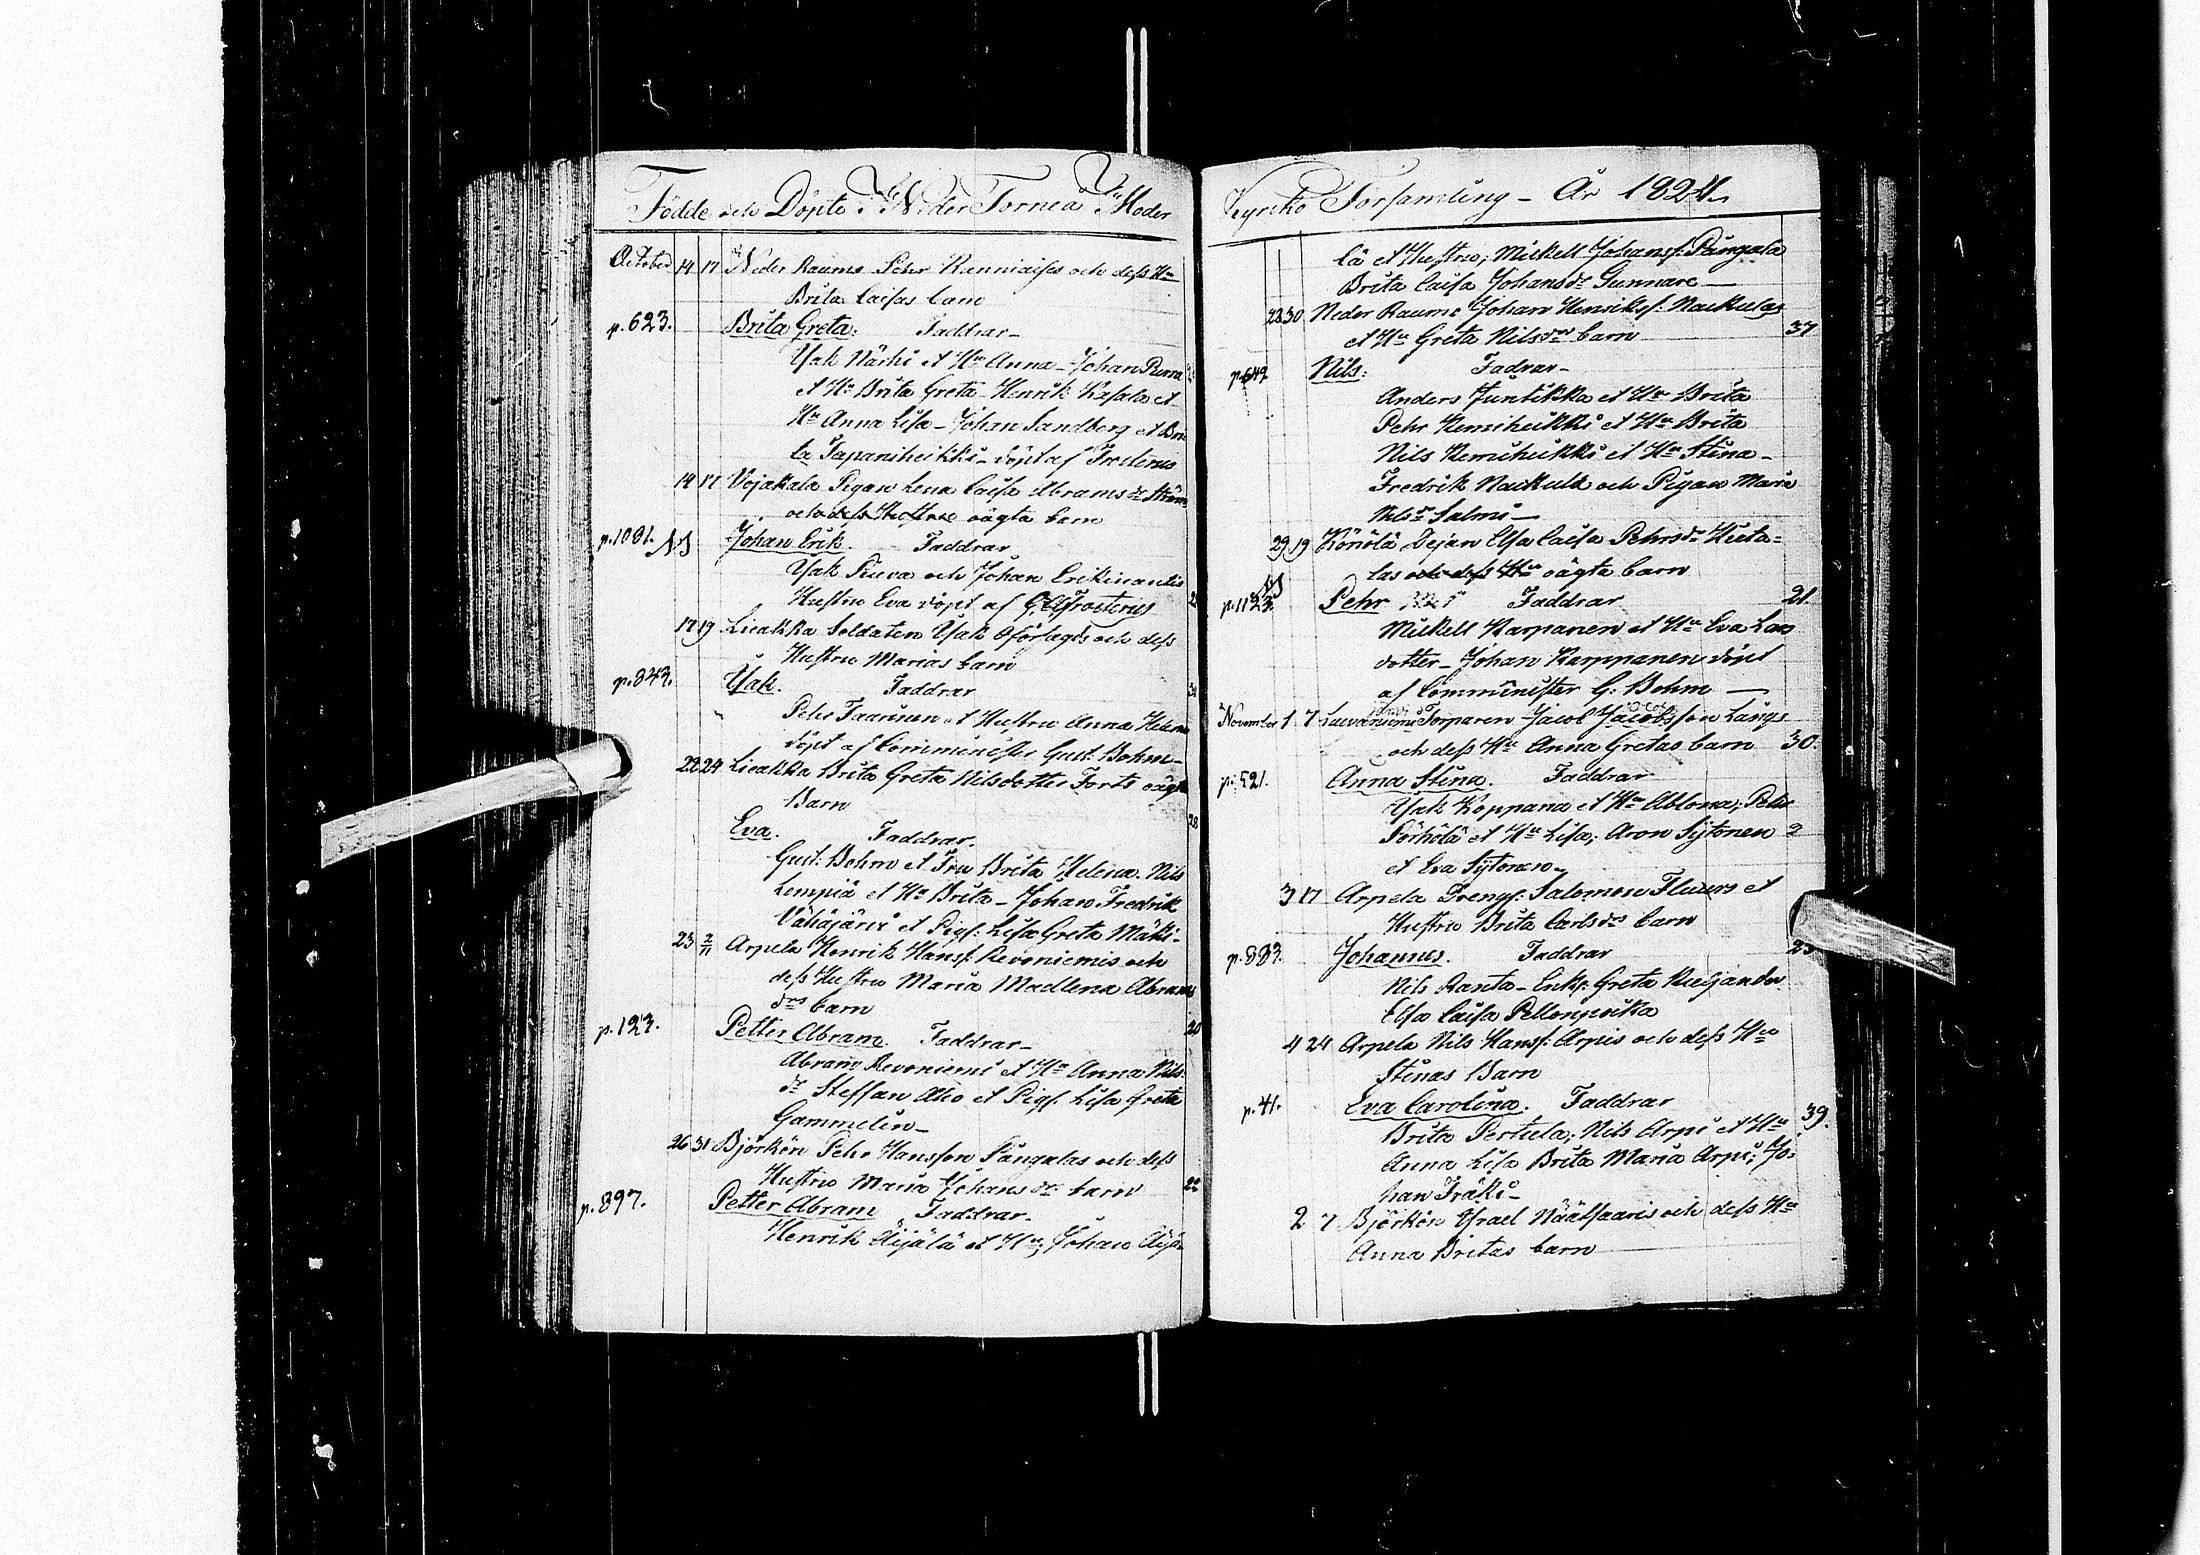 Födde och Döpte i Neder Torneå Moder
October 14 17 Neder Raumo Pehr Kanniaises och dess Hu
Brita Caisas barn
p. 623. Brita Greta. Faddrar
Isak Närhi et Hu Anna - Johan Purra
et Hu Brita Greta - Henrik Kasala et
Hu Anna Lisa - Johan Sandberg et Bri
ta Tapaniheikki - döpt af Frosterus
14 17 Vojakala Pigan Lena Caisa Abrams dr
och dess Hustrus oägta barn
p. 1081. Johan Erik. Faddrar
Isak Kuva och Johan
Hustru Eva döpt af Frosterus
17 19 Lieakka Soldaten Isak Oförlagds och dess
Hustru Marias barn
p. 843. Isak. Faddrar
Pehr Taarinen et Hustru Anna Helena
döpt af Comminister Gust: Bohm
22 24 Lieakka Brita Greta Nilsdotter Forts oägta
Barn
28
Eva. Faddrar.
Gust: Bohm et Fru Brita Helena. Nils
Lempiä et Hu Brita - Johan Fredrik
Vähäjärvi et Pigs: Lisa Greta Mäki-
23 2/11 Arpela Henrik Hanss: Revoniemis och
dess Hustru Maria Madlena Abrams
drs barn
p. 123. Petter Abram. Faddrar
Abram Revoniemi et Hu Anna Nils
dr Steffan Aho et Pigs. Lisa Greta
Gammelin
26 31 Björkön Pehr Hansson Pångalas och dess
Hustru Maria Johans dr barn 22
p. 897. Petter Abram Faddrar.
Henrik Äijälä et Hu; Johan Äijä-
Kyrko Församling - År 1824
lä et Hustru; Mickell Johanss: Pångala
Brita Caisa Johans dr Gunnare
28 30 Neder Raumo Johan Henrikss: Naukulas
et Hu Greta Nils drs barn 37
p. 649 Nils: Fadrar
Anders Juntikka et Hu Brita
Pehr Kemiheikki et Hu Brita
Nils Kemiheikki et Hu Stina
Fredrik Naukula och Pigan Maria
Nils dr Salmi
29 19 Könölä Dejan Elsa Caisa Pehrs dr Huta-
las och dess Hu oägta barn
p. 1123. Pehr Faddrar 21.
Mickell Karpanen et Hu Eva Lars
dotter - Johan Karppanen döpt
af Comminister G: Bohm
November 1 7 Torparen Jacob Jacobsson Längs
och dess Hu Anna Gretas barn 30.
p. 521. Anna Stina. Faddrar
Isak Koppana et Hu Ablona; Pehr
Pörhölä et Hu Lisa; Aron Sytonen
et Eva Sytonen
3 17 Arpela Drengs: Salomon Fluurs et
Hustru Brita Carls drs barn
p. 883. Johannes. Faddrar
Nils Ranta - Enks: Greta
Elsa Caisa
4 24 Arpela Nils Hanss: Arpis och dess Hu
Stinas Barn
p. 41. Eva Carolina. Faddrar 39.
Brita Pertula; Nils Arpi et Hu
Anna Lisa Brita Maria Arpi; Jo-
han Träki
2 7 Björkön Israel Näätsaaris och dess Hu
Anna Britas barn